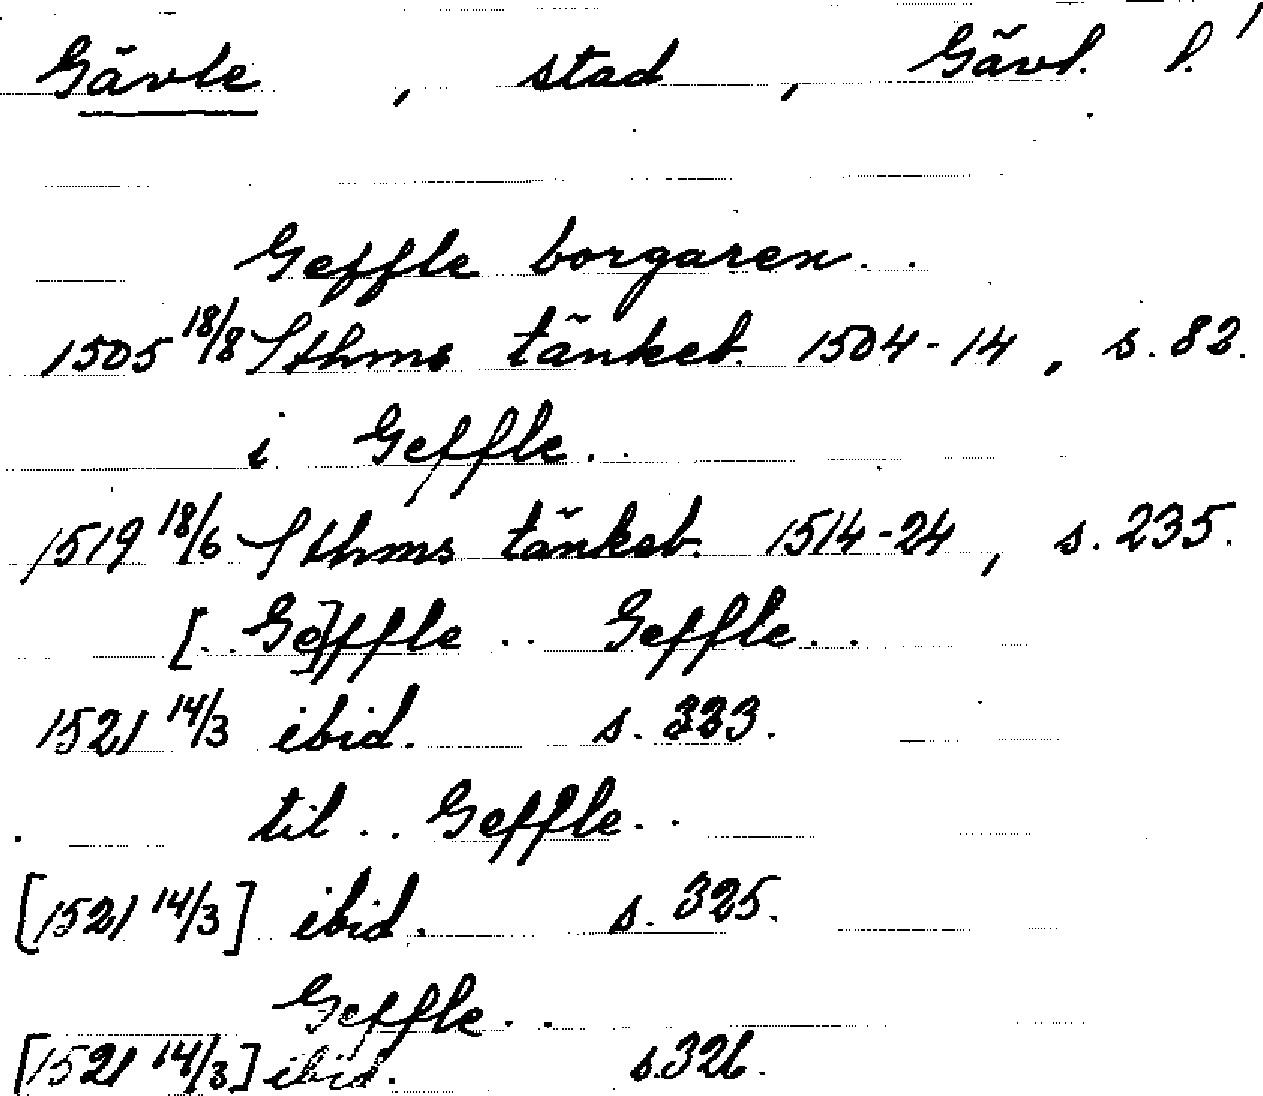 Gävle, stad, Gävl. l.
Geffle borgaren..
1505 18/8 Sthms tänkeb. 1504-14, s. 82.
i Geffle..
1519 18/6 Sthms tänkeb. 1514-24, s. 235.
[..Ge]ffle .. Geffle..
1521 14/3 ibid. s. 323.
til .. Geffle..
[1521 14/3] ibid. s. 325.
Geffle..
[1521 14/3] ibid. s. 326.